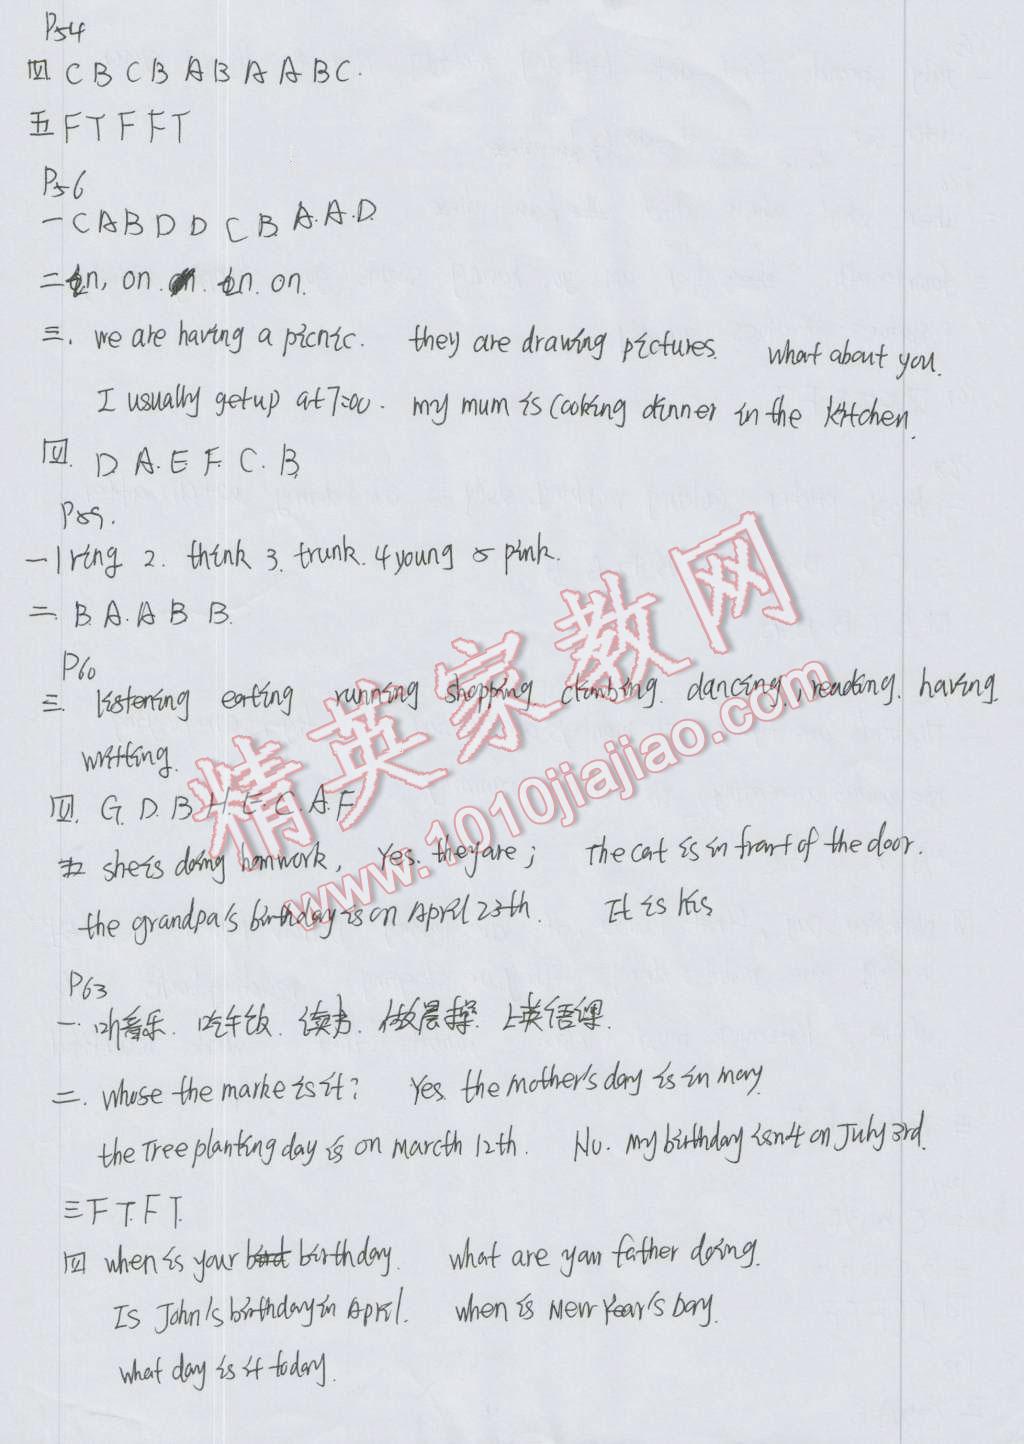 P54
四 C B C B A B A A B C.
五 F T F F T
P56
一 C A B D D C B. A. A. D.
二 in, on. in. on.
三. we are having a picnic. they are drawing pictures. what about you.
I usually get up at 7:00. my mum is cooking dinner in the kitchen.
四. D. A. E F. C. B.
P59.
一 1 ring 2. think 3. trunk. 4 young 5 pink.
二. B. A. A B B.
P60
三. listening eating running shopping. climbing. dancing, reading. having.
writting.
四. G. D. B. H. E. C. A. F
五 she is doing homwork, Yes. they are; The cat is in front of the door.
the grandpa's birthday is on April 23th. It is his
P63
一. 听音乐. 吃午饭. 读书. 做晨操. 上英语课.
二. whose the marke is it? Yes. the mother's day is in may.
the Tree planting day is on marcth 12th. No. my birthday isn't on July 3rd.
三 F T. F T.
四 when is your birthday. what are your father doing.
Is John's birthday in April. when is New Year's Day.
what day is it today.
精英家教网
www.1010jiajiao.com